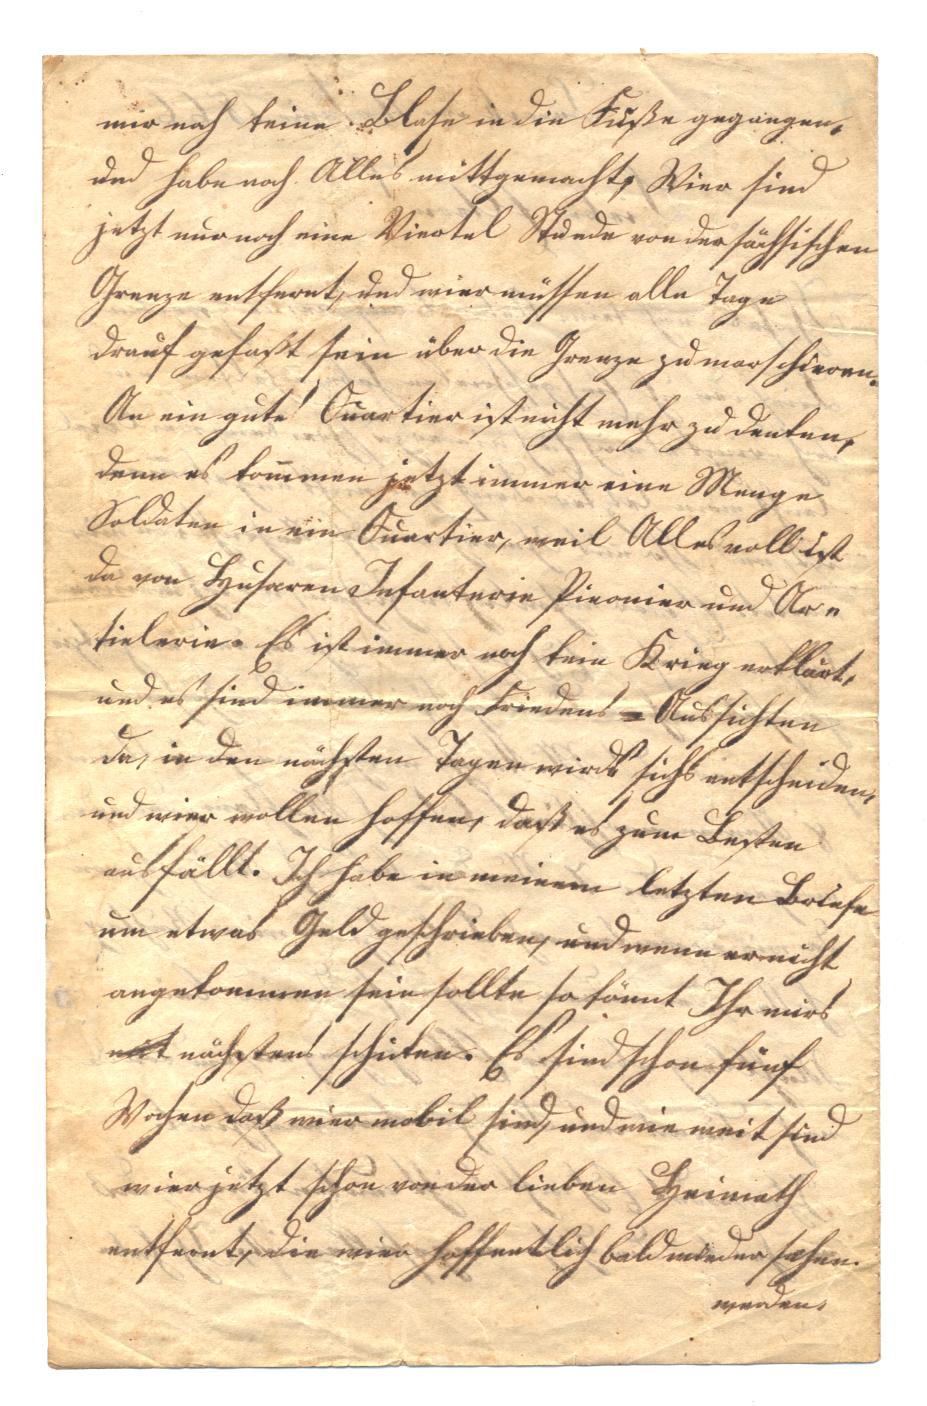 mir noch keine Blase in die Fuße gegangen,
und habe noch Alles mittgemacht, Wier sind
jetzt nur noch eine Viertel Stunde von der sächsischen
Grenze entfernt, und wier müssen alle Tage
drauf gefaßt sein über die Grenze zu marschieren.
An ein gutes Quartier ist nicht mehr zu denken,
denn es kommen jetzt immer eine Menge
Soldaten in ein Quartier, weil Alles voll ist
da von Husaren Infanterie Pieonier und Ar=
tielerie. Es ist immer noch kein Krieg erklärt,
und es sind immer noch Friedens=Aussichten
da, in den nächsten Tagen wirds sichs entscheiden,
und wier wollen hoffen, daß es zum Besten
ausfällt. Ich habe in meinem letzten Briefe
um etwas Geld geschrieben, und wenn er nicht
angekommen sein sollte so könnt Ihr mirs
nächstens schicken. Es sind schon fünf
Wochen daß wier mobil sind, und wie weit sind
wier jetzt schon von der lieben Heimath
entfernt, die wier hoffentlich bald wieder sehen
werden.